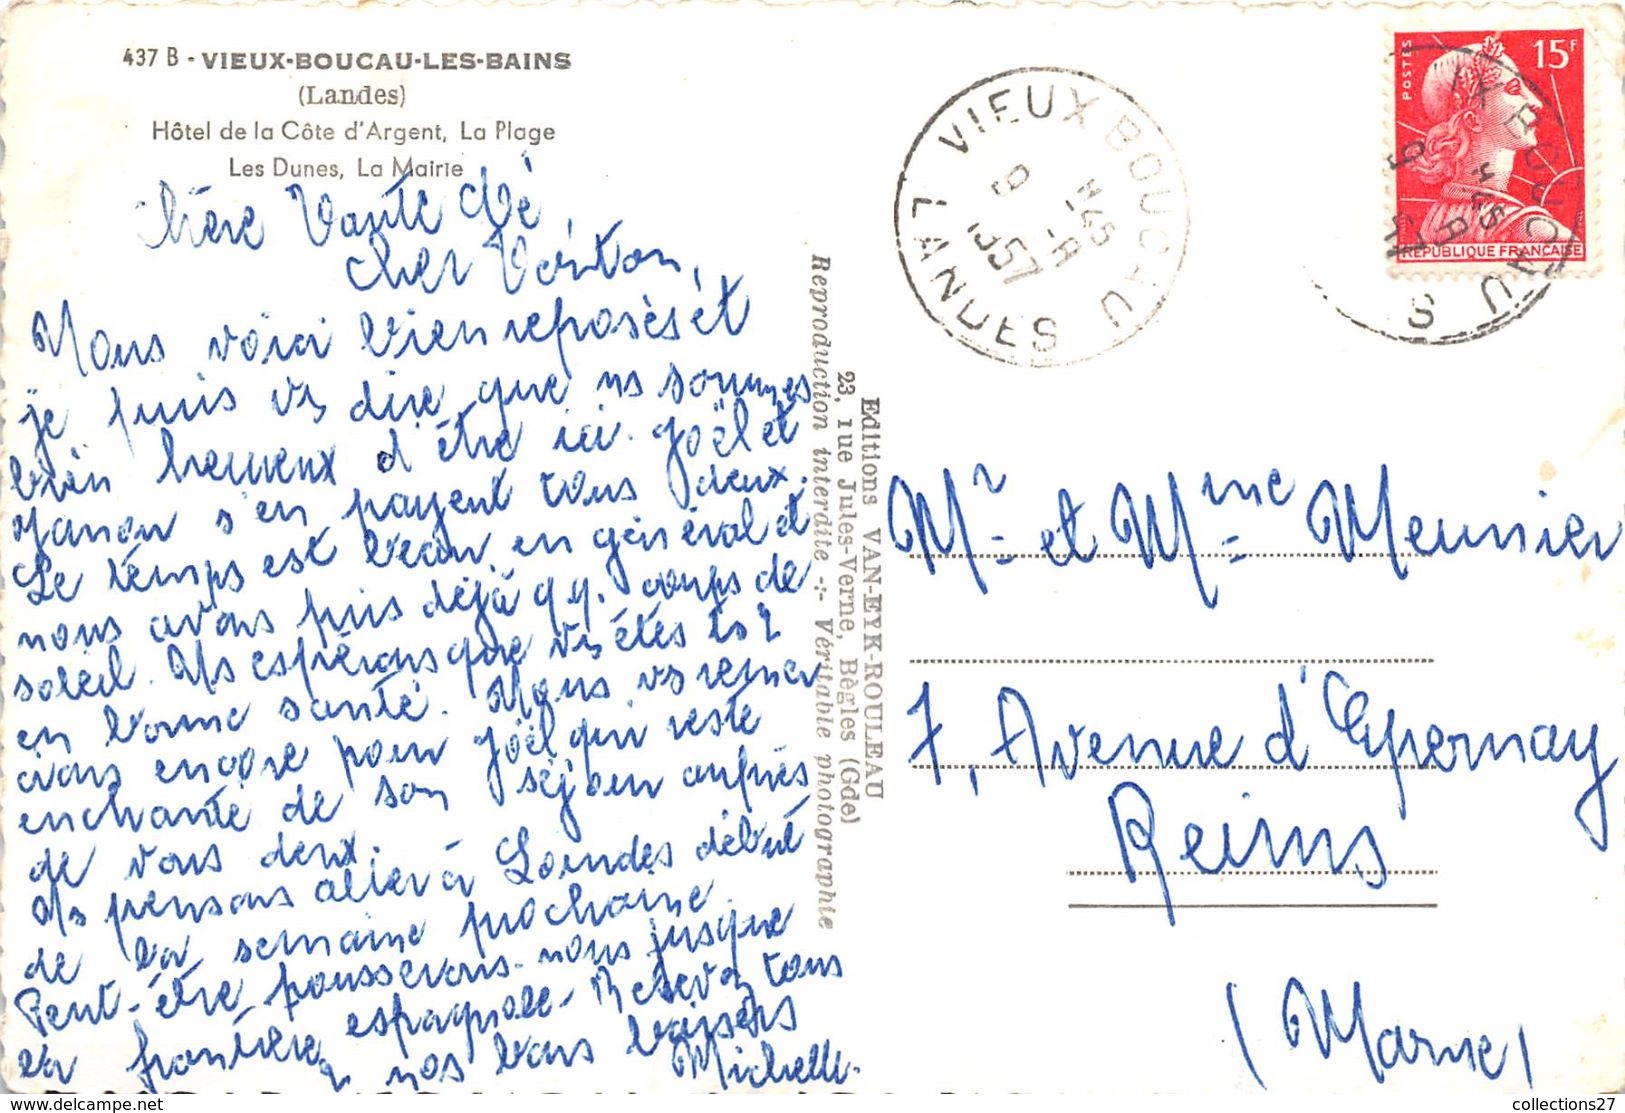 437 B - VIEUX-BOUCAU-LES-BAINS
(Landes)
Hôtel de la Côte d'Argent, La Plage
Les Dunes, La Mairie
Chère Tante Dé,
Cher Tonton,
Nous voici bien reposés et
je puis vs dire que ns sommes
bien heureux d'être ici. Joël et
Manou s'en payent tous deux.
Le temps est beau en général et
nous avons pris déjà qq. coups de
soleil. Ns espérons que vs êtes ts 2
en bonne santé. Nous vs remer
cions encore pour Joël qui reste
enchanté de son séjour auprès
de vous deux.
Ns pensons aller à Lourdes début
de la semaine prochaine.
Peut-être pousserons-nous jusque
la frontière espagnole - Recevez tous
2 nos bons baisers
Michelle.
Editions VAN-EYK-ROULEAU
23, rue Jules-Verne, Bègles (Gde)
Reproduction interdite -:- Véritable photographie
VIEUX BOUCAU
LANDES
H. 45
9 -8
1957
POSTES
15F
REPUBLIQUE FRANÇAISE
Mr et Mme Meunier
7, Avenue d'Epernay
Reims
(Marne)
collections27